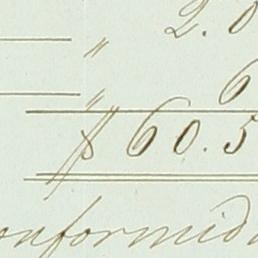 " 2.0
" 6
$ 60.5
onformida